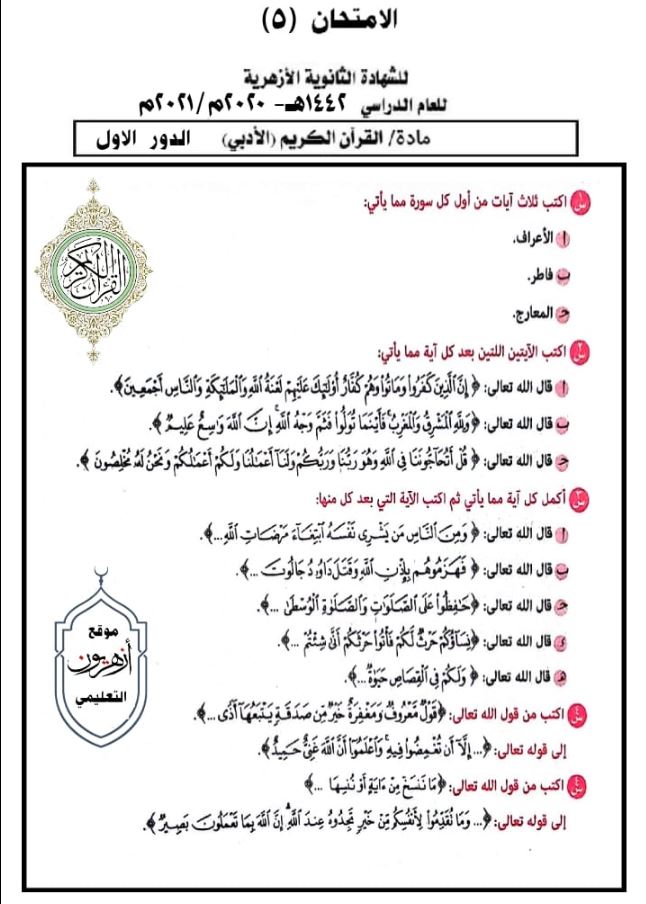 الامتحان (٥)
للشهادة الثانوية الأزهرية
للعام الدراسي ١٤٤٢هـ - ٢٠٢٠م/٢٠٢١م
مادة/ القرآن الكريم (الأدبي) الدور الاول
القرآن الكريم
س١ اكتب ثلاث آيات من أول كل سورة مما يأتي:
أ الأعراف.
ب فاطر.
ج المعارج.
س٢ اكتب الآيتين اللتين بعد كل آية مما يأتي:
أ قال الله تعالى: ﴿إِنَّ الَّذِينَ كَفَرُوا وَمَاتُوا وَهُمْ كُفَّارٌ أُولَٰئِكَ عَلَيْهِمْ لَعْنَةُ اللَّهِ وَالْمَلَائِكَةِ وَالنَّاسِ أَجْمَعِينَ﴾.
ب قال الله تعالى: ﴿وَلِلَّهِ الْمَشْرِقُ وَالْمَغْرِبُ ۚ فَأَيْنَمَا تُوَلُّوا فَثَمَّ وَجْهُ اللَّهِ ۚ إِنَّ اللَّهَ وَاسِعٌ عَلِيمٌ﴾.
ج قال الله تعالى: ﴿قُلْ أَتُحَاجُّونَنَا فِي اللَّهِ وَهُوَ رَبُّنَا وَرَبُّكُمْ وَلَنَا أَعْمَالُنَا وَلَكُمْ أَعْمَالُكُمْ وَنَحْنُ لَهُ مُخْلِصُونَ﴾.
س٣ أكمل كل آية مما يأتي ثم اكتب الآية التي بعد كل منها:
أ قال الله تعالى: ﴿وَمِنَ النَّاسِ مَن يَشْرِي نَفْسَهُ ابْتِغَاءَ مَرْضَاتِ اللَّهِ...﴾.
ب قال الله تعالى: ﴿فَهَزَمُوهُم بِإِذْنِ اللَّهِ وَقَتَلَ دَاوُودُ جَالُوتَ ...﴾.
ج قال الله تعالى: ﴿حَافِظُوا عَلَى الصَّلَوَاتِ وَالصَّلَاةِ الْوُسْطَىٰ ...﴾.
د قال الله تعالى: ﴿نِسَاؤُكُمْ حَرْثٌ لَّكُمْ فَأْتُوا حَرْثَكُمْ أَنَّىٰ شِئْتُمْ ...﴾.
هـ قال الله تعالى: ﴿وَلَكُمْ فِي الْقِصَاصِ حَيَاةٌ ...﴾.
موقع
أزهريون
التعليمي
س٤ اكتب من قول الله تعالى: ﴿قَوْلٌ مَّعْرُوفٌ وَمَغْفِرَةٌ خَيْرٌ مِّن صَدَقَةٍ يَتْبَعُهَا أَذًى ...﴾.
إلى قوله تعالى: ﴿... إِلَّا أَن تُغْمِضُوا فِيهِ ۚ وَاعْلَمُوا أَنَّ اللَّهَ غَنِيٌّ حَمِيدٌ﴾.
س٤ اكتب من قول الله تعالى: ﴿مَا نَنسَخْ مِنْ آيَةٍ أَوْ نُنسِهَا ...﴾
إلى قوله تعالى: ﴿... وَمَا تُقَدِّمُوا لِأَنفُسِكُم مِّنْ خَيْرٍ تَجِدُوهُ عِندَ اللَّهِ ۗ إِنَّ اللَّهَ بِمَا تَعْمَلُونَ بَصِيرٌ﴾.